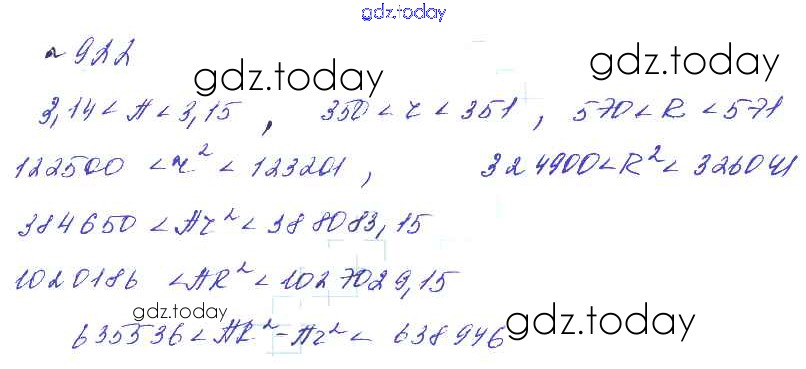 gdz.today
№ 922
gdz.today gdz.today
3,14 < π < 3,15 , 350 < r < 351 , 570 < R < 571
122500 < r² < 123201 , 324900 < R² < 326041
384650 < πr² < 388083,15
1020186 < πR² < 1027029,15
gdz.today gdz.today
635536 < πR² - πr² < 638946